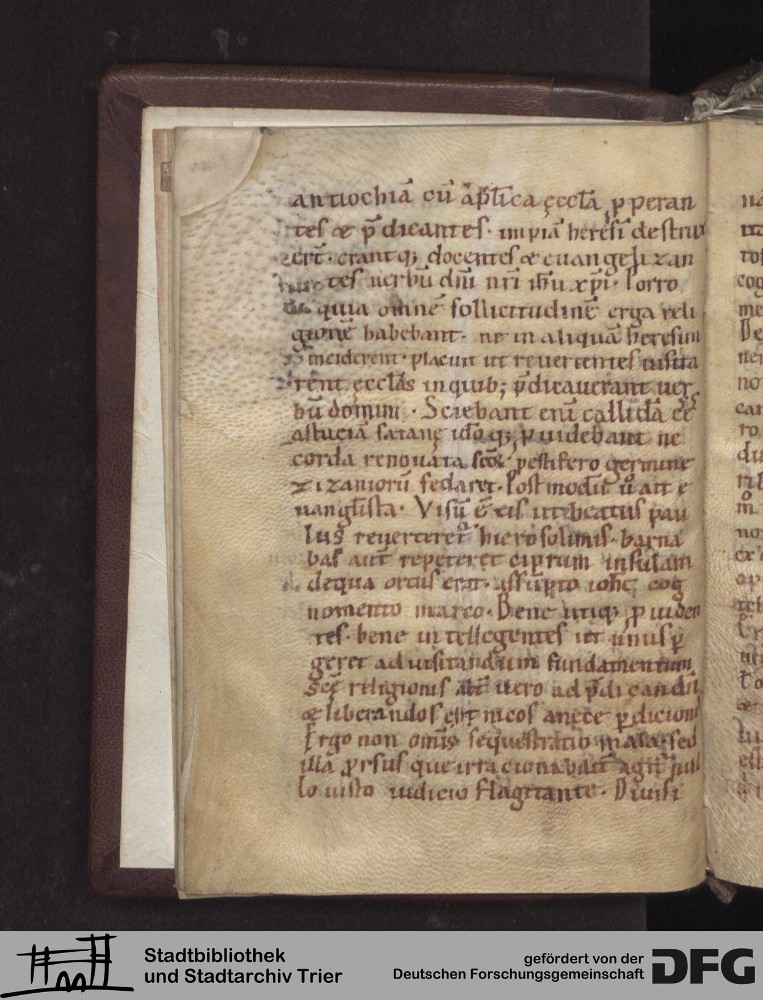 antiochiā cū ap̄lica ęccl̄a p̱peran
tes & p̄dicantes · impiā heresī destrux
ert̄ · erantq; docentes & euangelizan
tes uerbū dn̄i nr̄i ih̄u xp̄i · Porro
quia omnē sollicitudinē erga reli
gionē habebant · ne in aliquā heresim
inciderent · placuit ut reuertentes uisita
rent ęccl̄as inquib; p̄dicauerant uer
bū domini · Sciebant enī callidā &
astuciā satanę idōq; p̱uidebant ne
corda renouata sc̄o pestifero germine
zizaniorū fedaret · Postmodū ū ait e
uangl̄ista · Visū ē eis ut beatus pau
lus reuerteret hierosolimis · barna
bas aut̄ repeteret ciprum insulam
dequa ortus erat · assūpto ioh̄e cog
nomento marco · Bene utiq; p̱uiden
tes · bene intellegentes ut unus p̱
geret aduisitandum fundamentum
sc̄ę religionis alī uero ad p̄dicandū
& liberandos ethnicos anece p̱dicionis
Ergo non omīs sequestratio mala sed
illa p̱rsus que irracionabilit̄ agit̄ nul
lo iusto iudicio flagitante · Diuisi
Stadtbibliothek
und Stadtarchiv Trier
gefördert von der
Deutschen Forschungsgemeinschaft
DFG